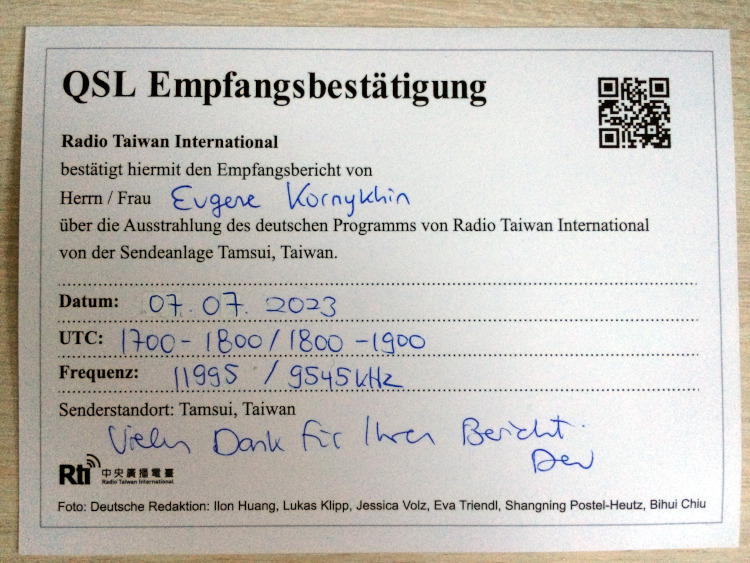 QSL Empfangsbestätigung
Radio Taiwan International
bestätigt hiermit den Empfangsbericht von
Herrn / Frau Eugene Kornykhin
über die Ausstrahlung des deutschen Programms von Radio Taiwan International
von der Sendeanlage Tamsui, Taiwan.
Datum: 07.07.2023
UTC: 1700-1800/1800-1900
Frequenz: 11995 / 9545 kHz
Senderstandort: Tamsui, Taiwan
Vielen Dank für Ihren Bericht.
Rti 中央廣播電臺
Radio Taiwan International
Foto: Deutsche Redaktion: Ilon Huang, Lukas Klipp, Jessica Volz, Eva Triendl, Shangning Postel-Heutz, Bihui Chiu